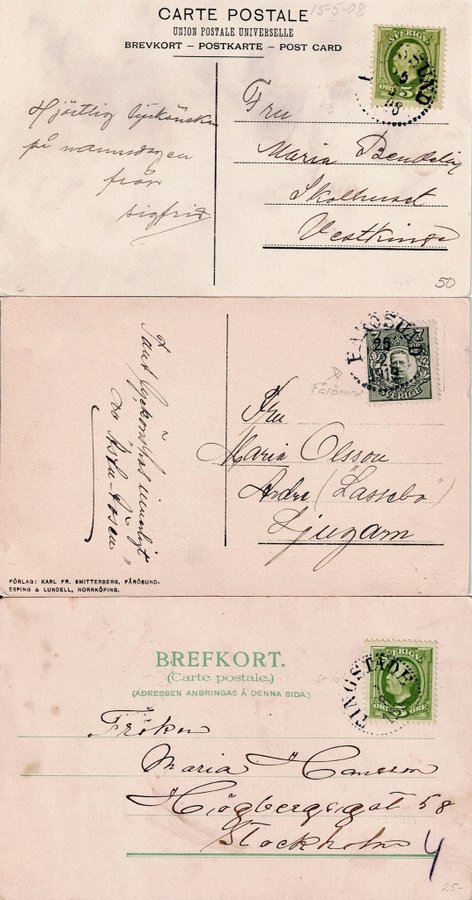 CARTE POSTALE
15-5-08
UNION POSTALE UNIVERSELLE
BREVKORT – POSTKARTE – POST CARD
SVERIGE
SUND
08
Hjärtlig lyckönskan
på namnsdagen
från
Sigfrid
Fru
Maria
Skolhuset
Vestkinge
50
FÅRÖSUND
25
2
1919
SVERIGE
Fårösund
Fru
Maria Olsson
Andre ("Lassebo")
Ljugarn
FÖRLAG: KARL FR. SMITTERBERG, FÅRÖSUND.
ESPING & LUNDELL, NORRKÖPING.
BREFKORT.
(Carte postale.)
(ADRESSEN ANBRINGAS Å DENNA SIDA.)
SVERIGE
TINGSTÄDE
FEM ÖRE
Fröken
Maria Hansson
Högbergsgat 58
Stockholm
4
25-